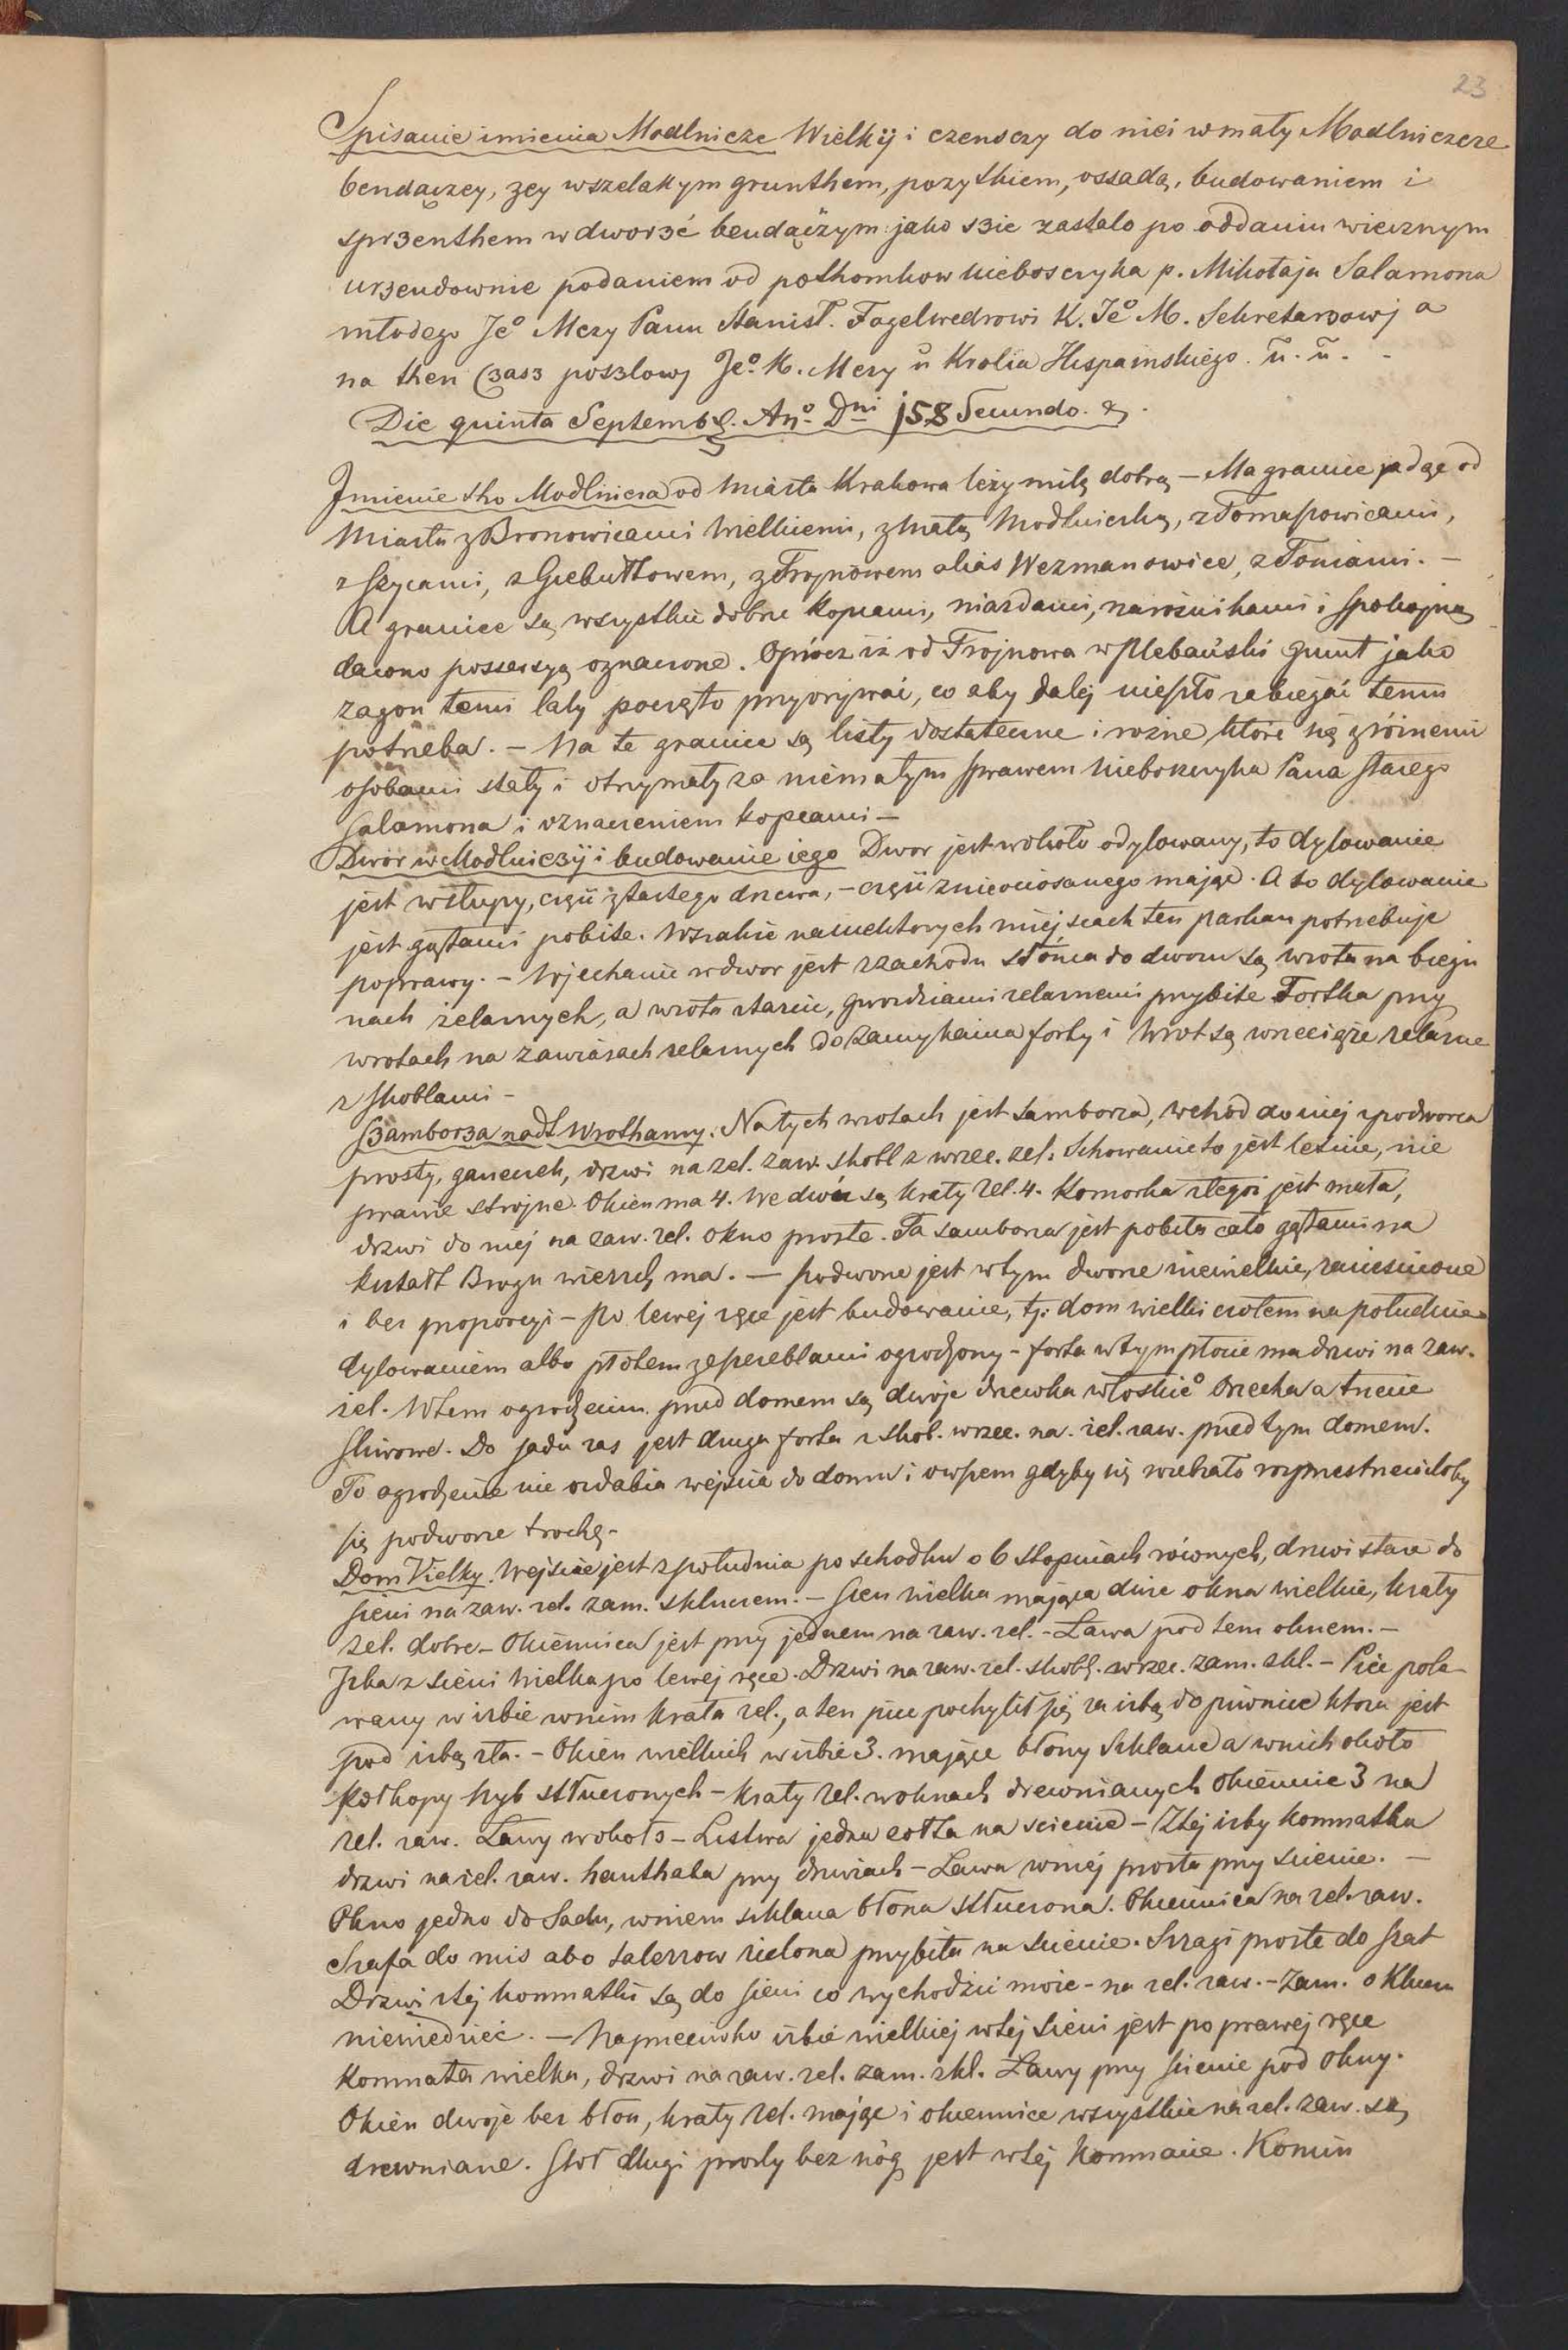 23
Spisanie imienia Modlnicze Wielkÿ i czensczy do niei w mały Modlniczcze
bendączey, zey wszelakym grunthem, pozythiem, ossadą, budowaniem i
sprzenthem w dworzé bendączym jako szie zastało po oddaniu wiecznym
urzendownie podaniem od pothomkow nieboszczyka p. Mikołaja Salamona
młodego Jeº Mczy Panu Stanisł. Fogelwedrowi K. Jeº M. Sekretarzowj a
na then Czasz poszlowj Jeº K. Mczy u Krolia Hispainskiego. u. u. -
Die quinta Septembr. Anº Dni j58 Secundo. &.
Jmienie tho Modlnicza od Miasta Krakowa leży milę dobrą – Ma granice jadąc od
Miasta z Bronowicami Wielkiemi, z Małą Modlniczką, z Tomaszowicami,
z Szycami, z Giebułtowem, z Trojnowem alias Wezmanowice, z Toniami. –
A granice są wszystkie dobre kopcami, niazdami, narożnikami i spokojną
dawno possessyą oznaczone. Oprócz iż od Trojnowa w Plebański grunt jako
zagon temi laty poczęto przyorywać, co aby dalej nieszło zabieżać temu
potrzeba. – Na te granice są listy dostateczne i rożne, które się z róznemi
osobami stały i otrzymały za niemałym sprawem Nieboszczyka Pana starego
Salamona i oznaczeniem kopcami –
Dwór w Modlniczÿ i budowanie iego Dwor jest wokoło odylowany, to dylowanie
jest w słupy, część z tartego drzewa, – część z nieociosanego mając. A to dylowanie
jest gątami pobite. Wszakże na niektorych miejscach ten parkan potrzebuje
poprawy. – Wjechanie w dwor jest z zachodu słónca do dworu są wrota na biegu
nach żelaznych, a wrota starcie, gwozdziami zelaznemi przybite Fortka przy
wrotach na zawiasach zelaznych do zamykania forty i Wrot są wrzeciąze zelazne
z skoblami –
Szamborza nadt Wrothamy. Na tych wrotach jest samborza, wchód do niej z podworza
prosty, ganeczek, drzwi na zel. zaw. skobl z wrzec. zel. Schowanie to jest lesnie, nie
prawie strojne. Okien ma 4. We dwu są kraty zel. 4. Komorka z tegoż jest mała,
drzwi do niej na zaw. zel. okno proste. Ta samborza jest pobita cało gątami na
kształt Brogu wierzch ma. – podworze jest w tym dworze niewielkie, zaciesnione
i bez proporcyi – Po lewej ręce jest budowanie, tj. dom wielki czołem na południe
dylowaniem albo płotem ze pereblami ogrodzony – forta w tym płocie ma drzwi na zaw.
zel. W tem ogrodzeniu przed domem są dwoje drzewka włoskieº Orzecha a trzecie
sliwowe. Do sadu zas jest druga forta z skob. wrzec. na. zel. zaw. przed tym domem.
To ogrodzenie nie ozdabia wejscia do domu i owszem gdyby się zwiekało rozprzestrzeniłoby
się podworze trochę –
Dom Vielky. Wejscie jest z południa po schodku o 6 stopniach równych, drzwi stare do
sieni na zaw. zel. zam. z kluczem. – Sien wielka mająca dwie okna wielkie, kraty
zel. dobre – Okiennica jest przy jednem na zaw. zel. – Ława pod tem oknem. –
Izba z sieni wielka po lewej ręce. Drzwi na zaw. zel. skobl. wrzec. zam. z kl. – Piec pola–
wany w izbie w nim krata zel., a ten piec pochylił się za izbą do piwnice ktora jest
pod izbą zła. – Okien wielkich w izbie 3. mające błony szklane a w nich około
połkopy szyb stłuczonych – kraty zel. w oknach drewnianych okiennic 3 na
zel. zaw. Ławy wokoło – Listwa jedna cołta na scienie – Z tej izby kommatka
drzwi na zel. zaw. hanthaba przy drzwiach – Ława w niej prosta przy scienie. –
Okno jedno do Sadu, w niem szklana błona stłuczona. Okiennica na zel. zaw.
Szafa do mis abo talerzow zielona przybita na scienie. Szragi proste do szat
Drzwi z tej kommatki są do sieni co wychodzić może – na zel. zaw. – Zam. o Kluczu
niewiedzieć. – Naprzeciwko izbie wielkiej w tej sieni jest po prawej ręce
Komnata wielka, drzwi na zaw. zel. zam. z kl. Ławy przy scienie pod okny.
Okien dwoje bez błon, kraty zel. mając i okiennice wszystkie na zel. zaw. są
drewniane. Stół długi prosty bez nóg jest w tej Komnacie. Komin